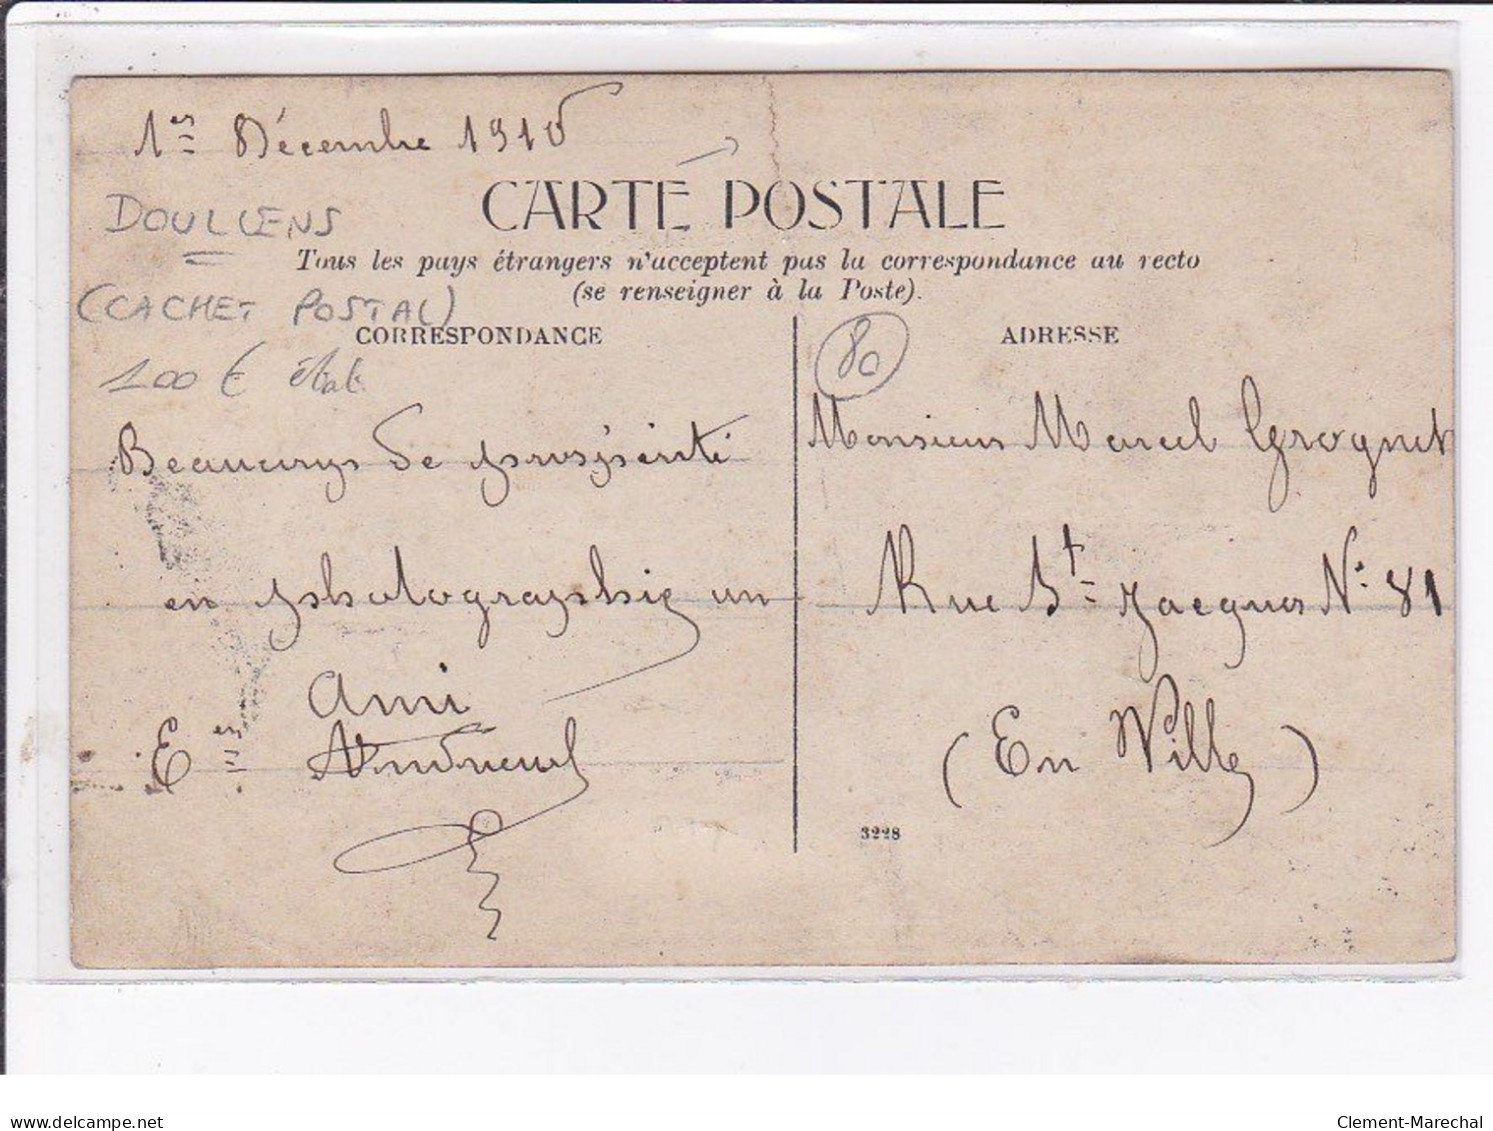 1er Décembre 1910
DOULLENS
CARTE POSTALE
Tous les pays étrangers n'acceptent pas la correspondance au recto
(se renseigner à la Poste).
(CACHET POSTAL)
CORRESPONDANCE
ADRESSE
80
100 € état
Beaucoup de prospérité
en photographie un
ami
Monsieur Marcel Grognet
Rue St Jacques N° 81
(En Ville)
3228
delcampe.net
Clement-Marechal